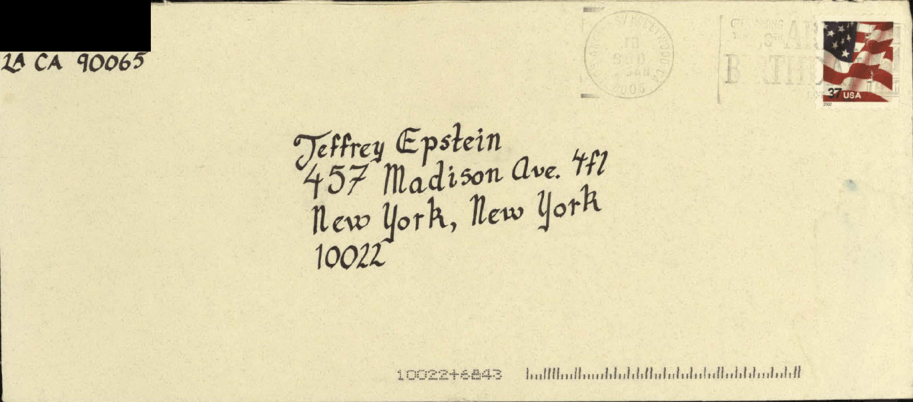 LA CA 90065
37 USA
Jeffrey Epstein
457 Madison Ave. 4fl
New York, New York
10022
10022+6843